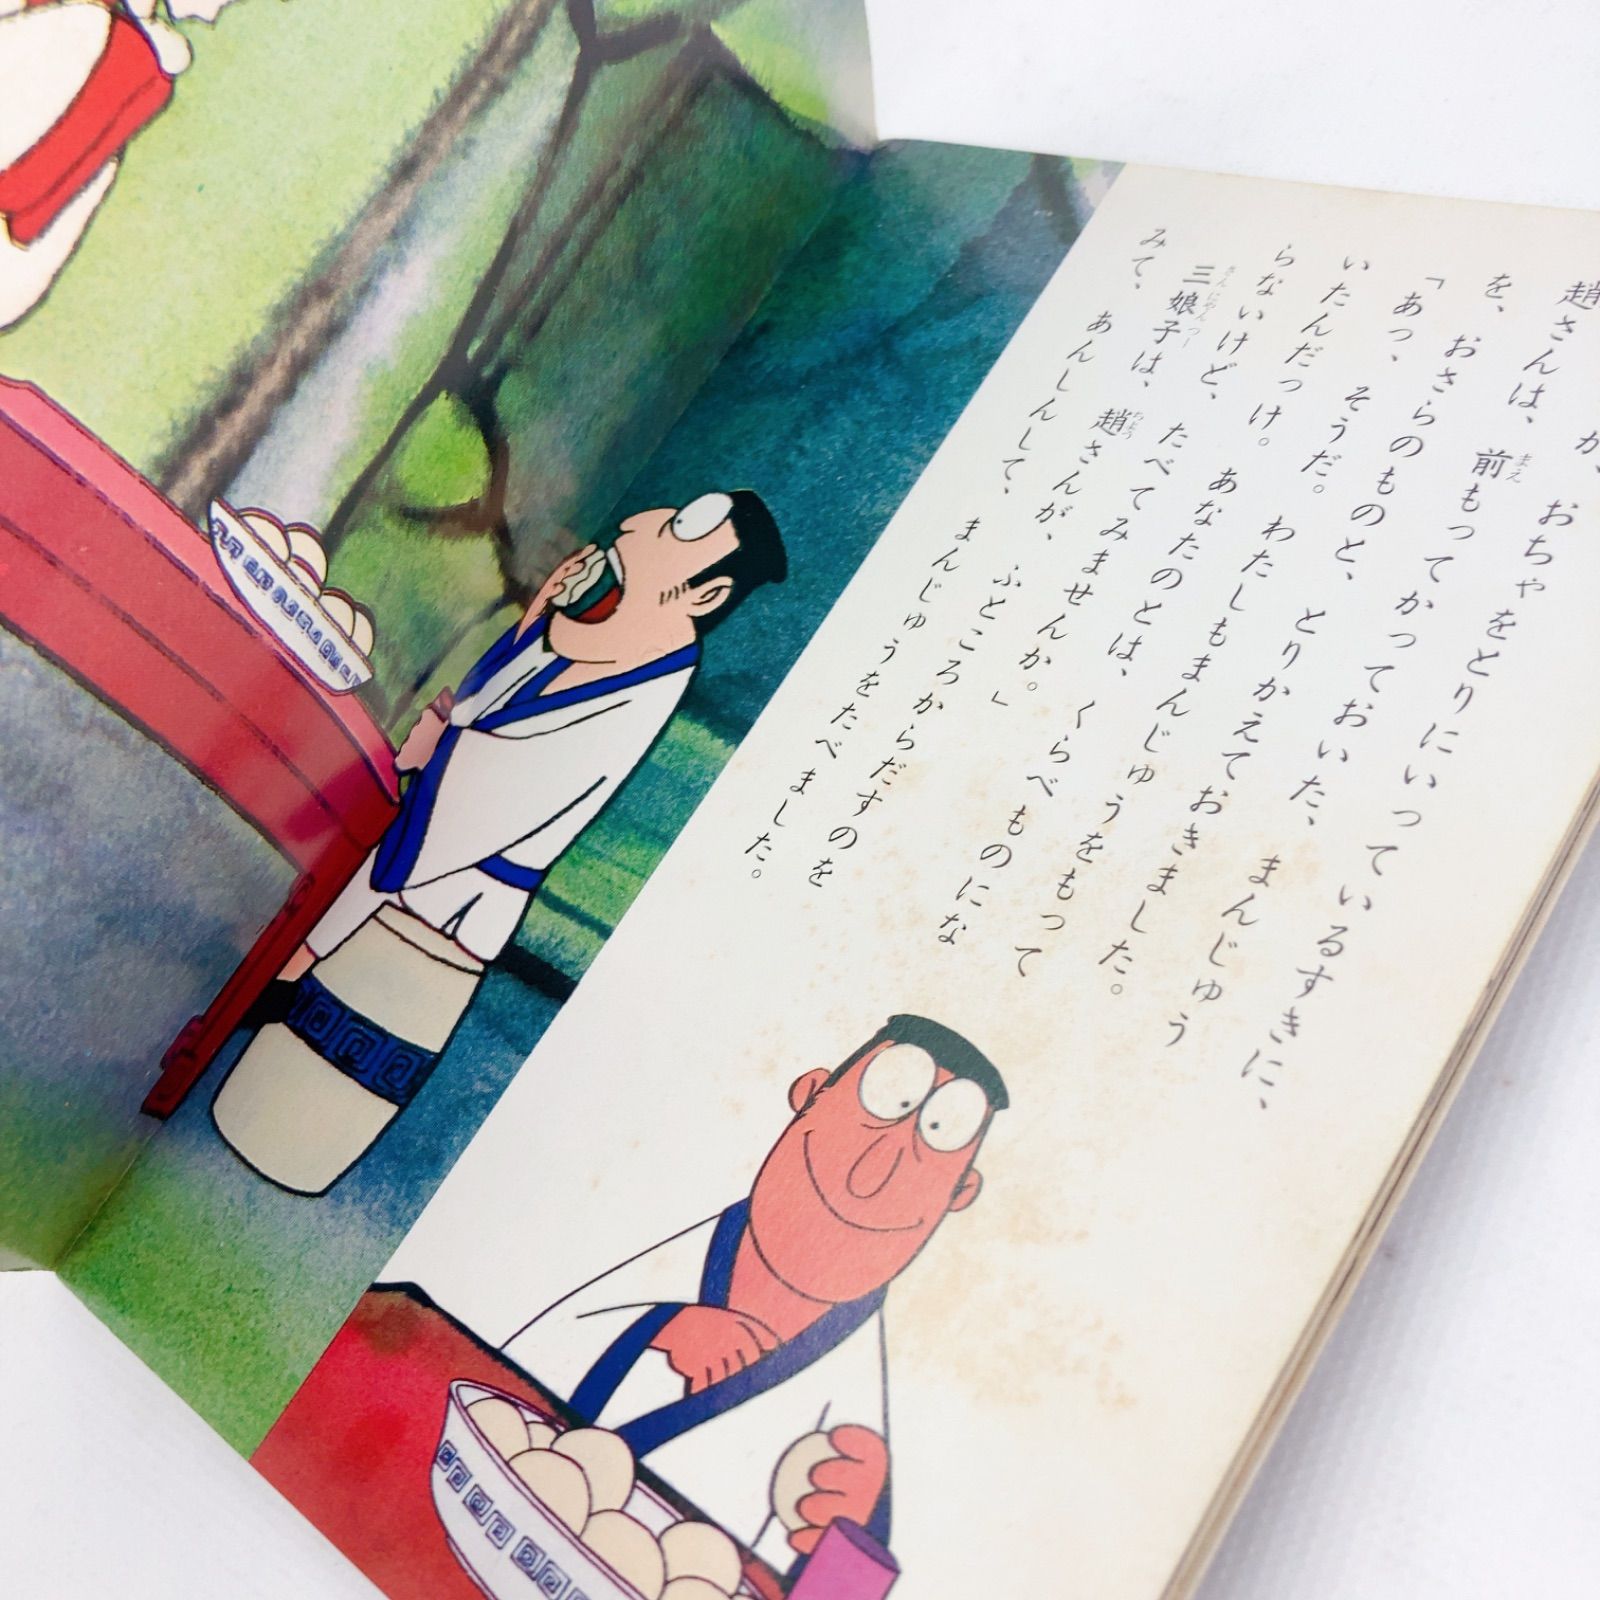 が、おちゃをとりにいっているすきに、
趙さんは、前もってかっておいた、まんじゅう
を、おさらのものと、とりかえておきました。
「あっ、そうだ。わたしもまんじゅうをもって
いたんだっけ。あなたのとは、くらべものにな
らないけど、たべてみませんか。」
三娘子は、趙さんが、ふところからだすのを
みて、あんしんして、まんじゅうをたべました。